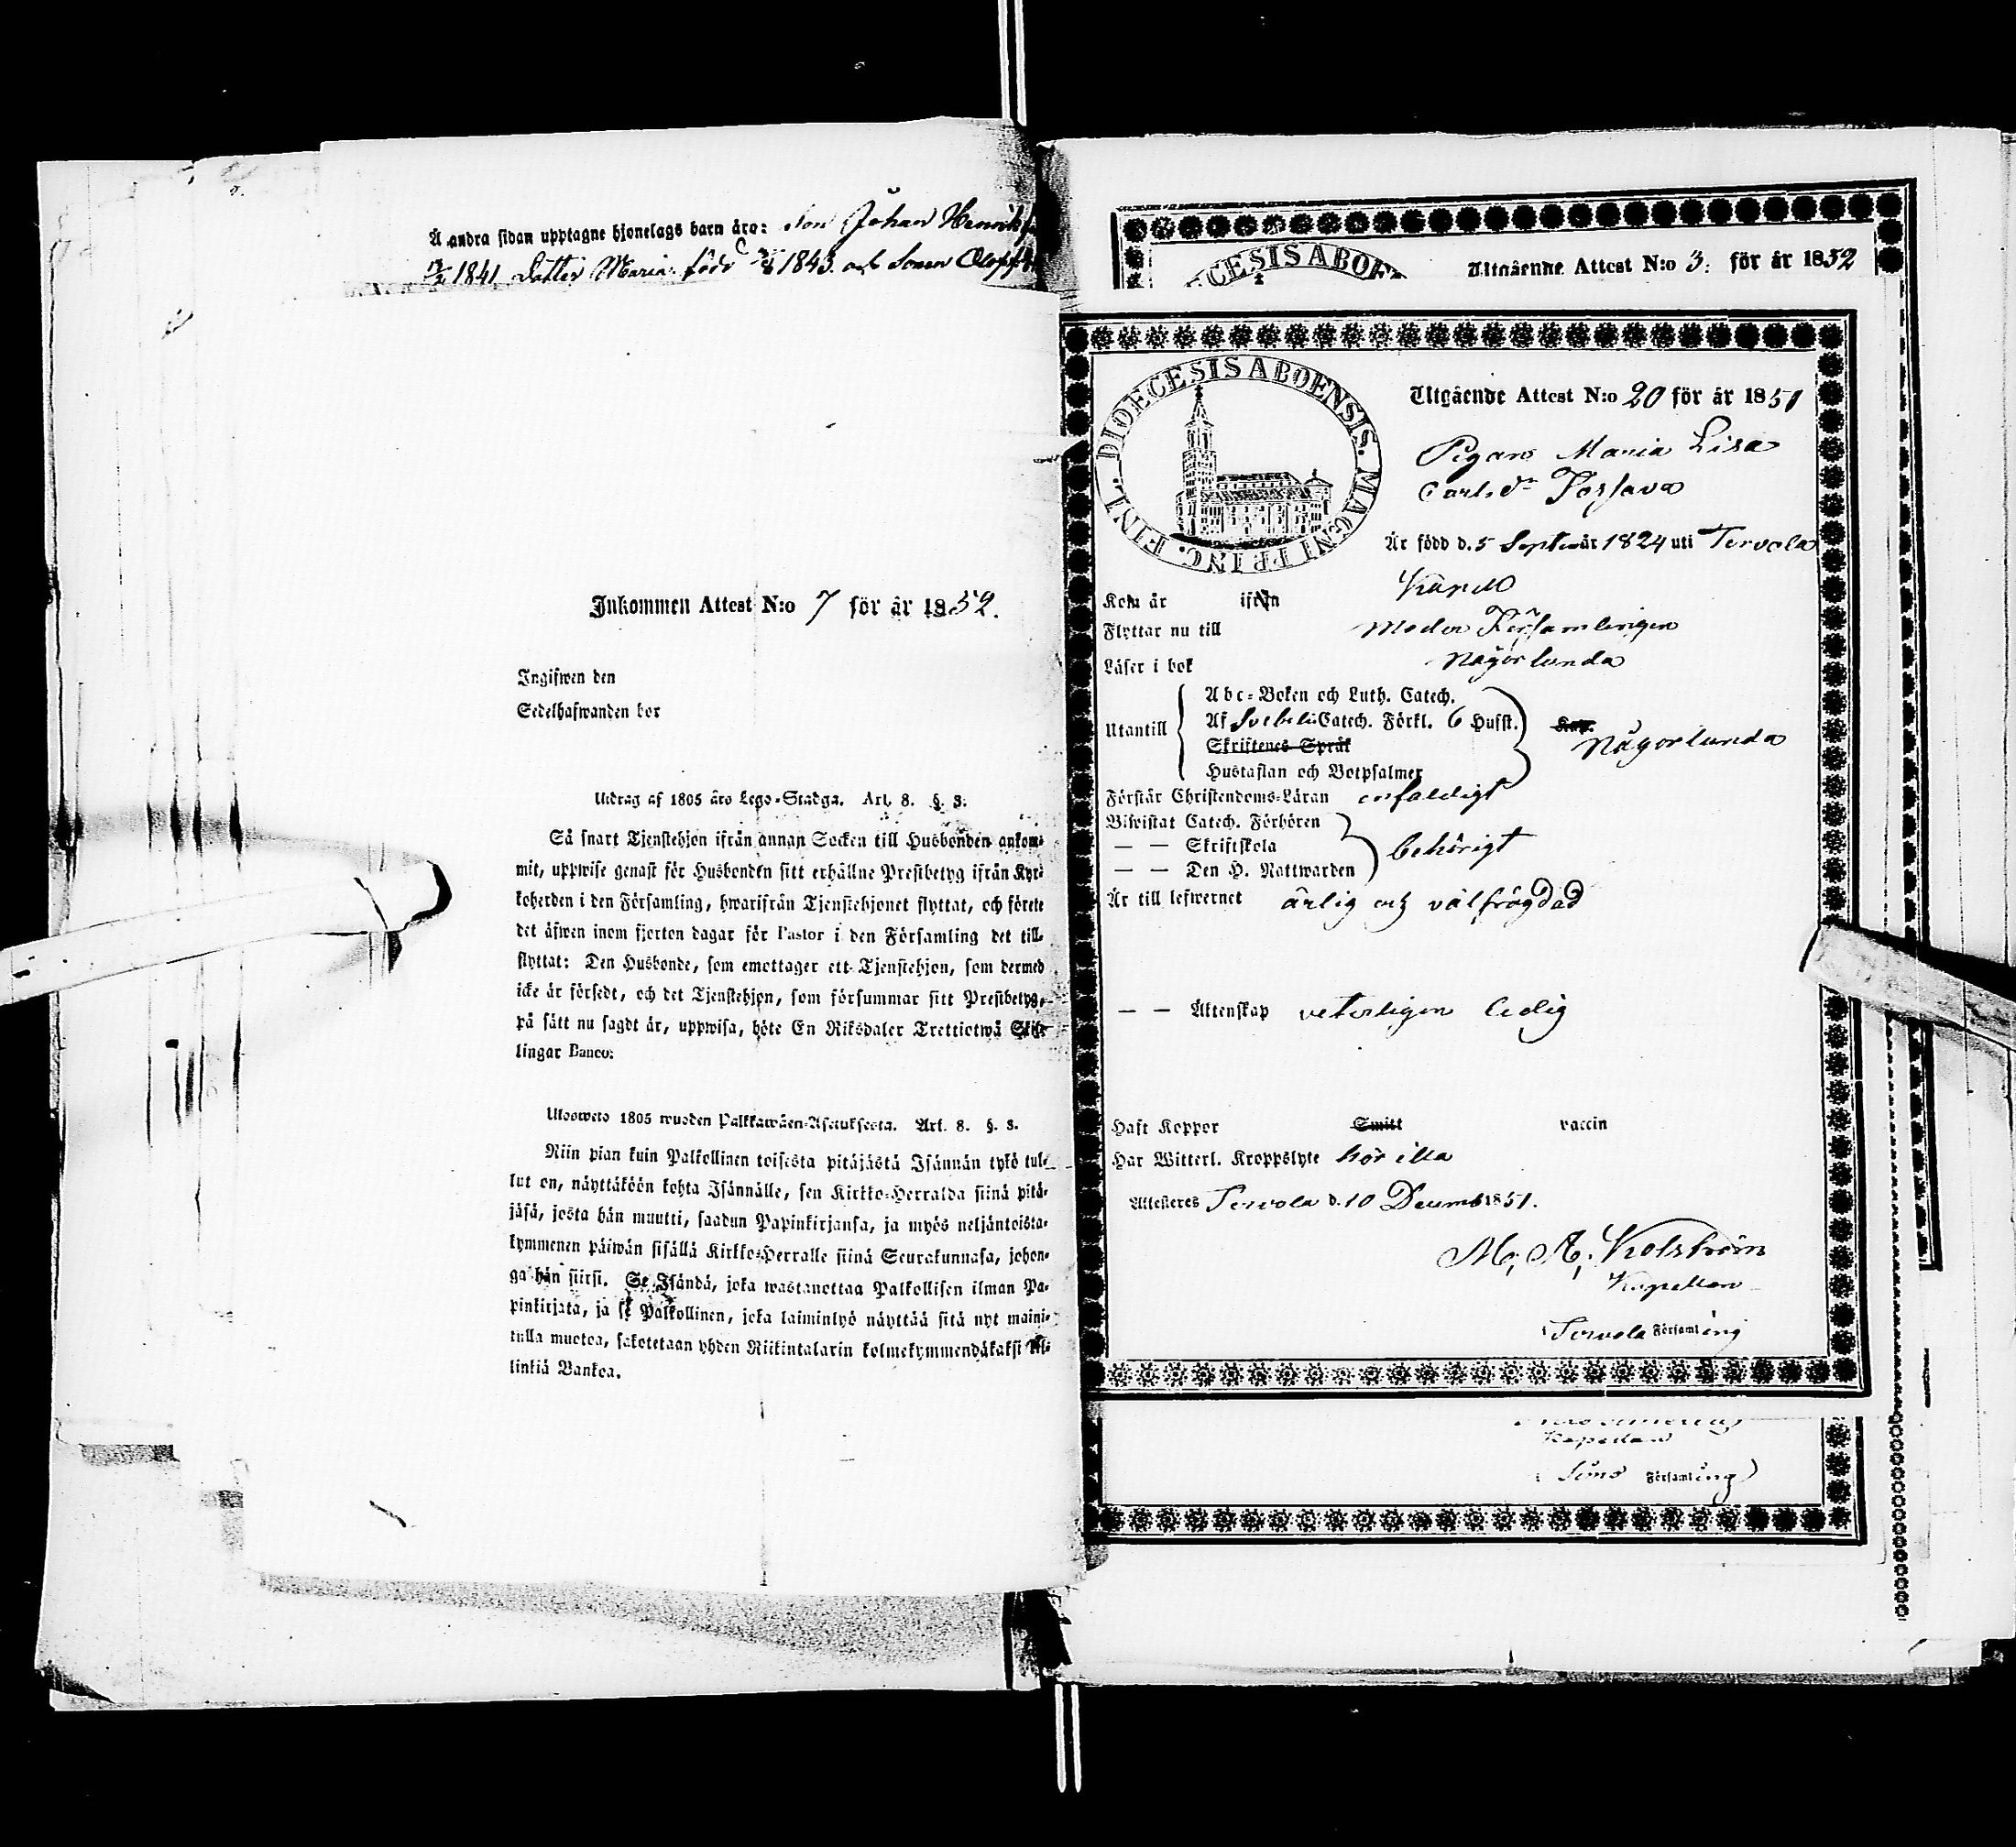 Å andra sidan upptagne hjonelags barn äro: Son Johan Henrik
1841 Dotter Maria född 1843 och Sonen Oloff
Inkommen Attest N:o 7 för år 1852.
Ingifwen den
Sedelhafwanden bor
Utdrag af 1805 års Lego-Stadga. Art. 8. §. 3.
Så snart Tjenstehjon ifrån annan Socken till Husbonden ankom-
mit, uppwise genast för Husbonden sitt erhållne Prestbetyg ifrån Kyr-
koherden i den Församling, hwarifrån Tjenstehjonet flyttat, och förete
det äfwen inom fjorton dagar för Pastor i den Församling det till-
flyttat: Den Husbonde, som emottager ett Tjenstehjon, som dermed
icke är försedt, och det Tjenstehjon, som försummar sitt Prestbetyg,
på sätt nu sagdt är, uppwisa, böte En Riksdaler Trettiotwå Skil-
lingar Banco.
Ulosweto 1805 wuoden Palkkawäen-Asetuksesta. Art. 8. §. 3.
Niin pian kuin Palkollinen toisesta pitäjästä Isännän tykö tul-
lut on, näyttäköön kohta Isännälle, sen Kirkko-Herralda siinä pitä-
jäsä, josta hän muutti, saadun Papinkirjansa, ja myös neljäntoista-
kymmenen päiwän sisällä Kirkko-Herralle siinä Seurakunnasa, johon-
ga hän siirsi. Se Isändä, joka wastanottaa Palkollisen ilman Pa-
pinkirjata, ja se Palkollinen, joka laiminlyö näyttää sitä nyt maini-
tulla muotoa, sakotetaan yhden Riikintalarin kolmekymmendäkaksi Kil-
linkiä Bankoa.
CESIS ABOE
Utgående Attest N:o 3. för år 1852
DIOECESIS ABOENSIS. MAGNI PRINC. FINL.
Utgående Attest N:o 20 för år 1851
Pigan Maria Lisa
Carls dr
Är född d. 5 Septem år 1824 uti Tervola
Kom år ifrån
Flyttar nu till Moder Församlingen
Läser i bok någorlunda
Utantill
Abc-Boken och Luth. Catech.
Af Svebelii Catech. Förkl. 6 Husst.
Skriftenes Språk
Hustaflan och Botpsalmer
Någorlunda
Förstår Christendoms-Läran enfaldigt
Biwistat Catech. Förhören
— — Skriftskola
— — Den H. Nattwarden
behörigt
Är till lefwernet ärlig och välfrägdad
— — Äktenskap veterligen ledig
Haft Koppor Smitt vaccin
Har Witterl. Kroppslyte hör illa
Attesteres Tervola d. 10 Decemb 1851.
M. A.
Kapellan
Tervola Församling
Kapellan
(Simo Församling)